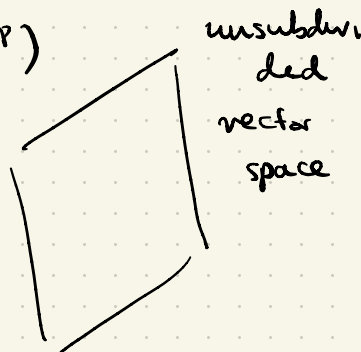 P)
unsubdivi
ded
vector
space